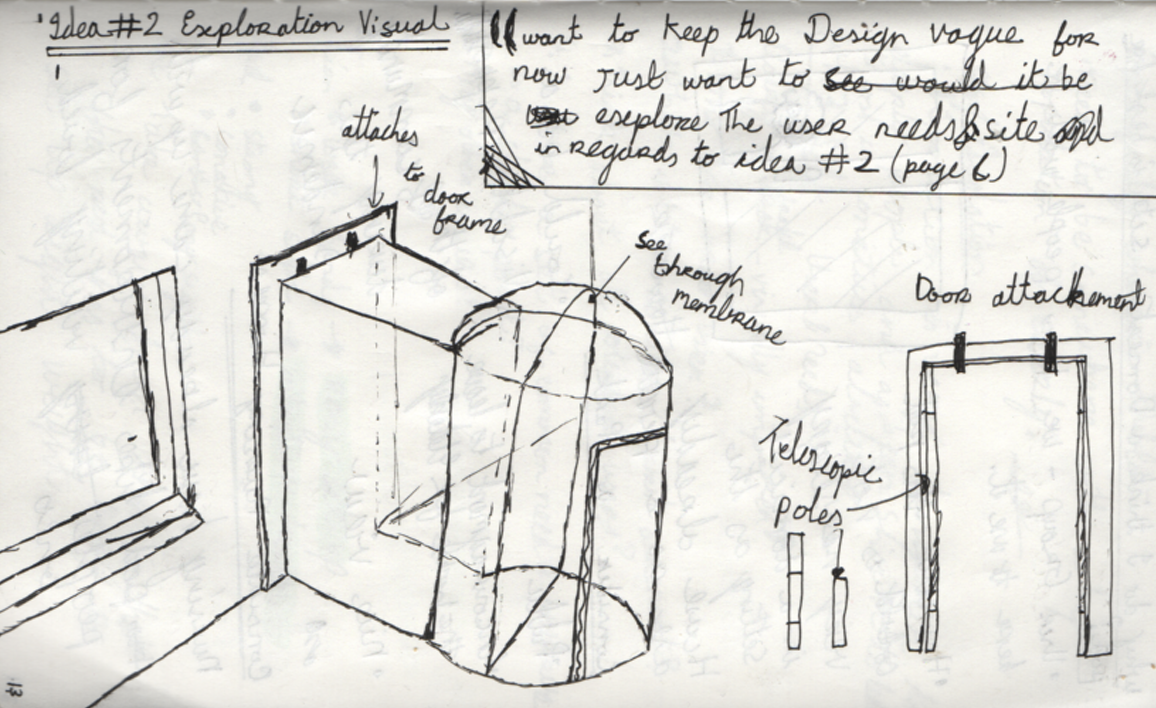 'Idea #2 Exploration Visual
"want to keep the Design vague for
now just want to see would it be
explore The user needs & site
in regards to idea #2 (page 6)
attaches
to
door
frame
see
through
membrane
Door attachement
Telescopic
poles
13